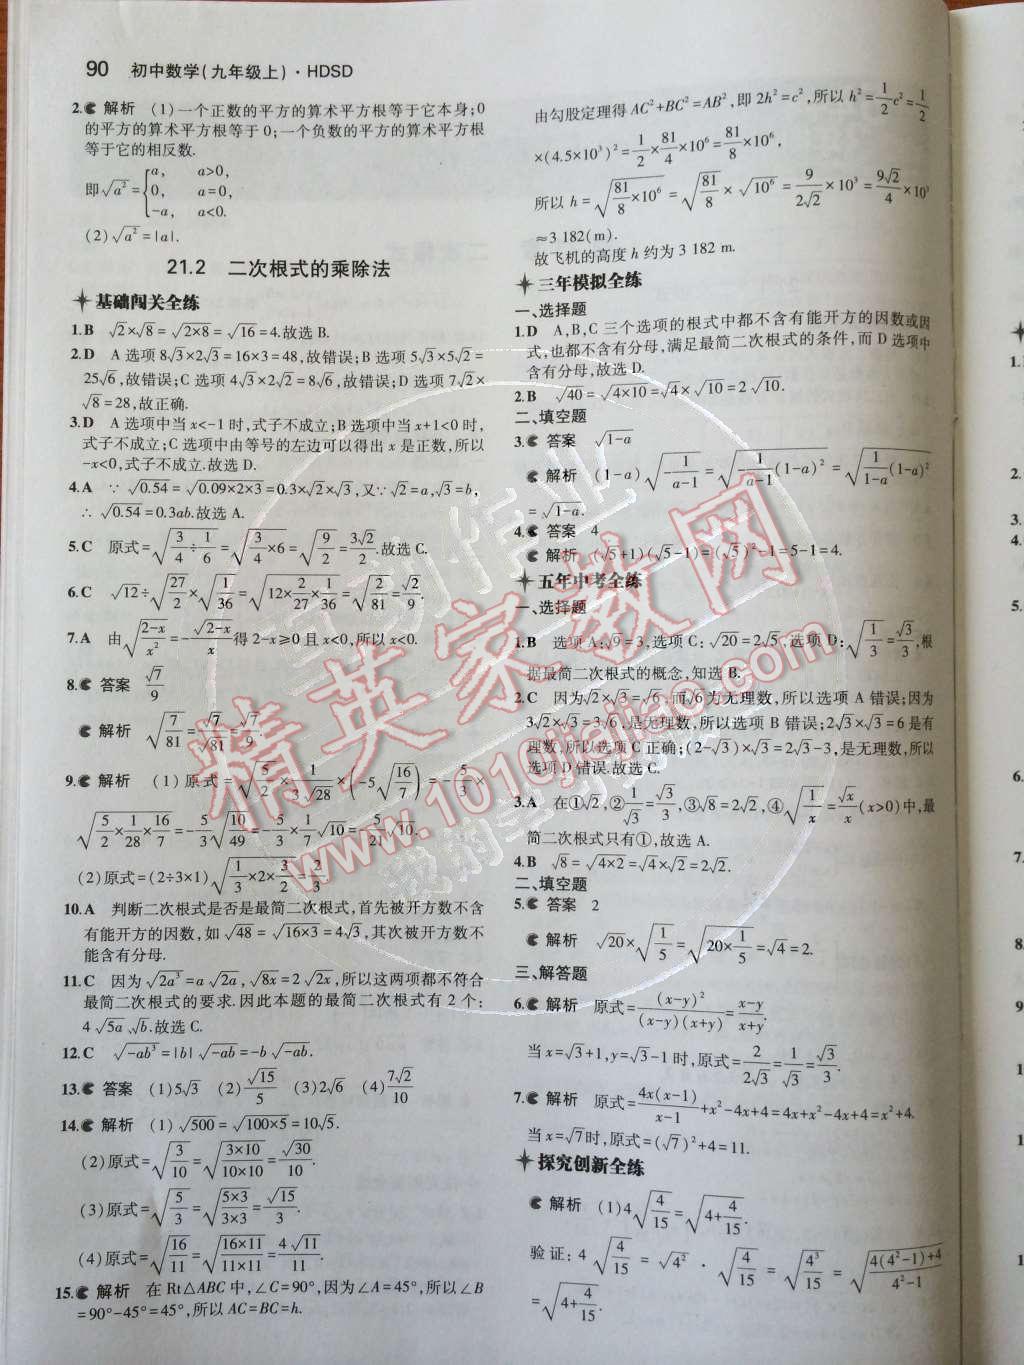 90 初中数学(九年级上)·HDSD
2. 解析 (1)一个正数的平方的算术平方根等于它本身;0
的平方的算术平方根等于0;一个负数的平方的算术平方根
等于它的相反数.
即√a²={a, a>0,
0, a=0,
-a, a<0.
(2)√a²=|a|.
21.2 二次根式的乘除法
基础闯关全练
1.B √2×√8=√(2×8)=√16=4.故选B.
2.D A选项8√3×2√3=16×3=48,故错误;B选项5√3×5√2=
25√6,故错误;C选项4√3×2√2=8√6,故错误;D选项7√2×
√8=28,故正确.
3.D A选项中当x<-1时,式子不成立;B选项中当x+1<0时,
式子不成立;C选项中由等号的左边可以得出x是正数,所以
-x<0,式子不成立.故选D.
4.A ∵ √0.54=√(0.09×2×3)=0.3×√2×√3,又∵√2=a,√3=b,
∴ √0.54=0.3ab.故选A.
5.C 原式=√(3/4÷1/6)=√(3/4×6)=√(9/2)=3√2/2.故选C.
6.C √12÷√(27/2)×√(1/36)=√(12×2/27×1/36)=√(2/81)=√2/9.
7.A 由√((2-x)/x²)=-√(2-x)/x得2-x≥0且x<0,所以x<0.
8. 答案 √7/9
解析 √(7/81)=√7/√81=√7/9.
9. 解析 (1)原式=√(5/2)×1/(3√28)×(-5√(16/7))=-5/3×
√(5/2×1/28×16/7)=-5/3√(10/49)=-5/3×1/7√10=-5/21√10.
(2)原式=(2÷3×1)√(1/3×2×3/2)=2/3.
10.A 判断二次根式是否是最简二次根式,首先被开方数不含
有能开方的因数,如√48=√(16×3)=4√3,其次被开方数不
能含有分母.
11.C 因为√(2a³)=a√(2a),√(8x)=2√(2x),所以这两项都不符合
最简二次根式的要求.因此本题的最简二次根式有2个:
4√(5a)、√b.故选C.
12.C √(-ab³)=|b|√(-ab)=-b√(-ab).
13. 答案 (1)5√3 (2)√15/5 (3)2√6 (4)7√2/10
14. 解析 (1)√500=√(100×5)=10√5.
(2)原式=√(3/10)=√((3×10)/(10×10))=√30/10.
(3)原式=√(5/3)=√((5×3)/(3×3))=√15/3.
(4)原式=√(16/11)=√((16×11)/(11×11))=4√11/11.
15. 解析 在Rt△ABC中,∠C=90°,因为∠A=45°,所以∠B
=90°-45°=45°,所以AC=BC=h.
由勾股定理得AC²+BC²=AB²,即2h²=c²,所以h²=1/2c²=1/2
×(4.5×10³)²=1/2×81/4×10⁶=81/8×10⁶,
所以h=√(81/8×10⁶)=√(81/8)×√(10⁶)=9/(2√2)×10³=9√2/4×10³
≈3 182(m).
故飞机的高度h约为3 182 m.
三年模拟全练
一、选择题
1.D A,B,C三个选项的根式中都不含有能开方的因数或因
式,也都不含有分母,满足最简二次根式的条件,而D选项中
含有分母,故选D.
2.B √40=√(4×10)=√4×√10=2√10.
二、填空题
3. 答案 √(1-a)
解析 (1-a)√(-1/(a-1))=√(-1/(a-1)(1-a)²)=√(1/(1-a)(1-a)²)
=√(1-a).
4. 答案 4
解析 (√5+1)(√5-1)=(√5)²-1=5-1=4.
五年中考全练
一、选择题
1.B 选项A:√9=3,选项C:√20=2√5,选项D:√(1/3)=√3/3,根
据最简二次根式的概念,知选B.
2.C 因为√2×√3=√6,而√6为无理数,所以选项A错误;因为
3√2×√3=3√6,是无理数,所以选项B错误;2√3×√3=6是有
理数,所以选项C正确;(2-√3)×√3=2√3-3,是无理数,所以
选项D错误.故选C.
3.A 在①√2,②1/√3=√3/3,③√8=2√2,④√(1/x)=√x/x(x>0)中,最
简二次根式只有①,故选A.
4.B √8=√(4×2)=√4×√2=2√2.
二、填空题
5. 答案 2
解析 √20×√(1/5)=√(20×1/5)=√4=2.
三、解答题
6. 解析 原式=(x-y)²/((x-y)(x+y))=(x-y)/(x+y).
当x=√3+1,y=√3-1时,原式=2/(2√3)=1/√3=√3/3.
7. 解析 原式=4x(x-1)/(x-1)+x²-4x+4=4x+x²-4x+4=x²+4.
当x=√7时,原式=(√7)²+4=11.
探究创新全练
解析 (1)4√(4/15)=√(4+4/15).
验证:4√(4/15)=√4²·√(4/15)=√(4³/15)=√((4(4²-1)+4)/(4²-1))
=√(4+4/15).
精英家教网
www.1010jiajiao.com